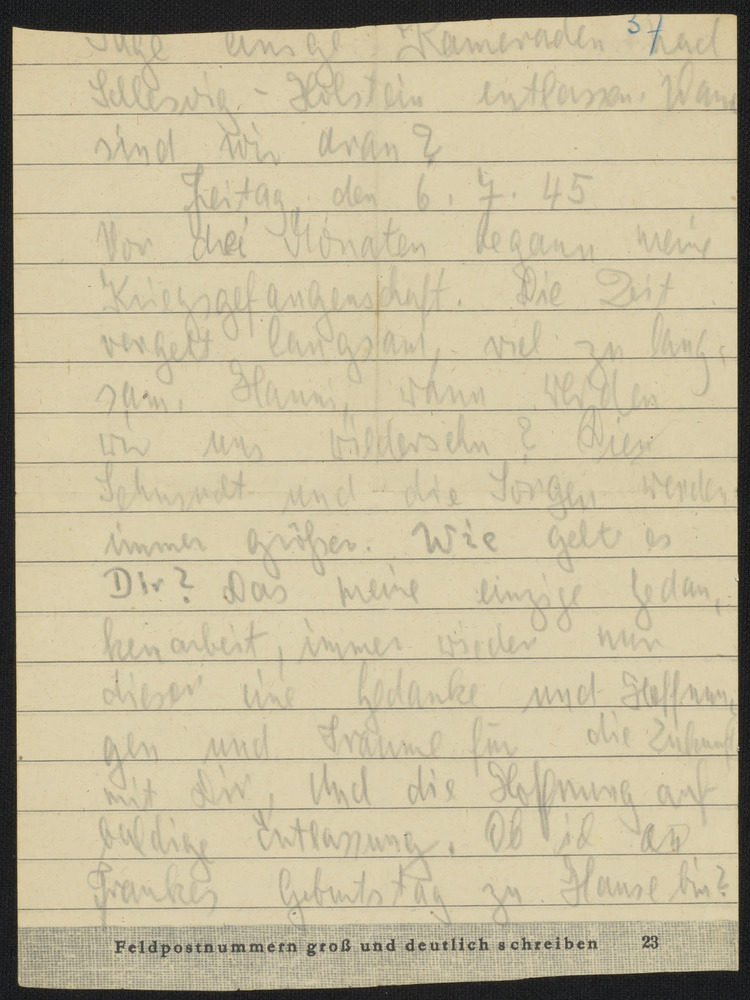 Tage einige Kameraden nach
Schleswig-Holstein entlassen. Wann
sind wir dran?
Freitag, den 6. 7. 45
Vor drei Monaten begann meine
Kriegsgefangenschaft. Die Zeit
vergeht langsam, viel zu lang-
sam. Hanni, wann werden
wir uns wiedersehn? Die
Sehnsucht und die Sorgen werden
immer größer. Wie geht es
Dir? Das meine einzige Gedan-
kenarbeit, immer wieder nur
dieser eine Gedanke und Hoffnun-
gen und Träume für die Zukunft
mit Dir, Und die Hoffnung auf
baldige Entlassung. Ob ich an
Geburtstag zu Hause bin?
Feldpostnummern groß und deutlich schreiben 23